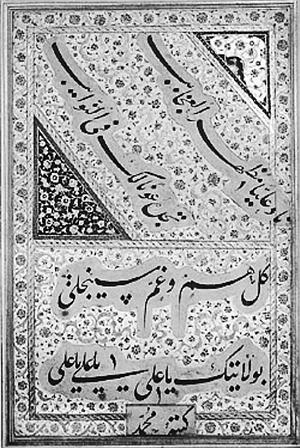 ناد علیا مظهر العجایب
تجده عونا لک فی النوایب
کل هم و غم سینجلی
بولایتک یا علی یا علی یا علی
کتبه محمد